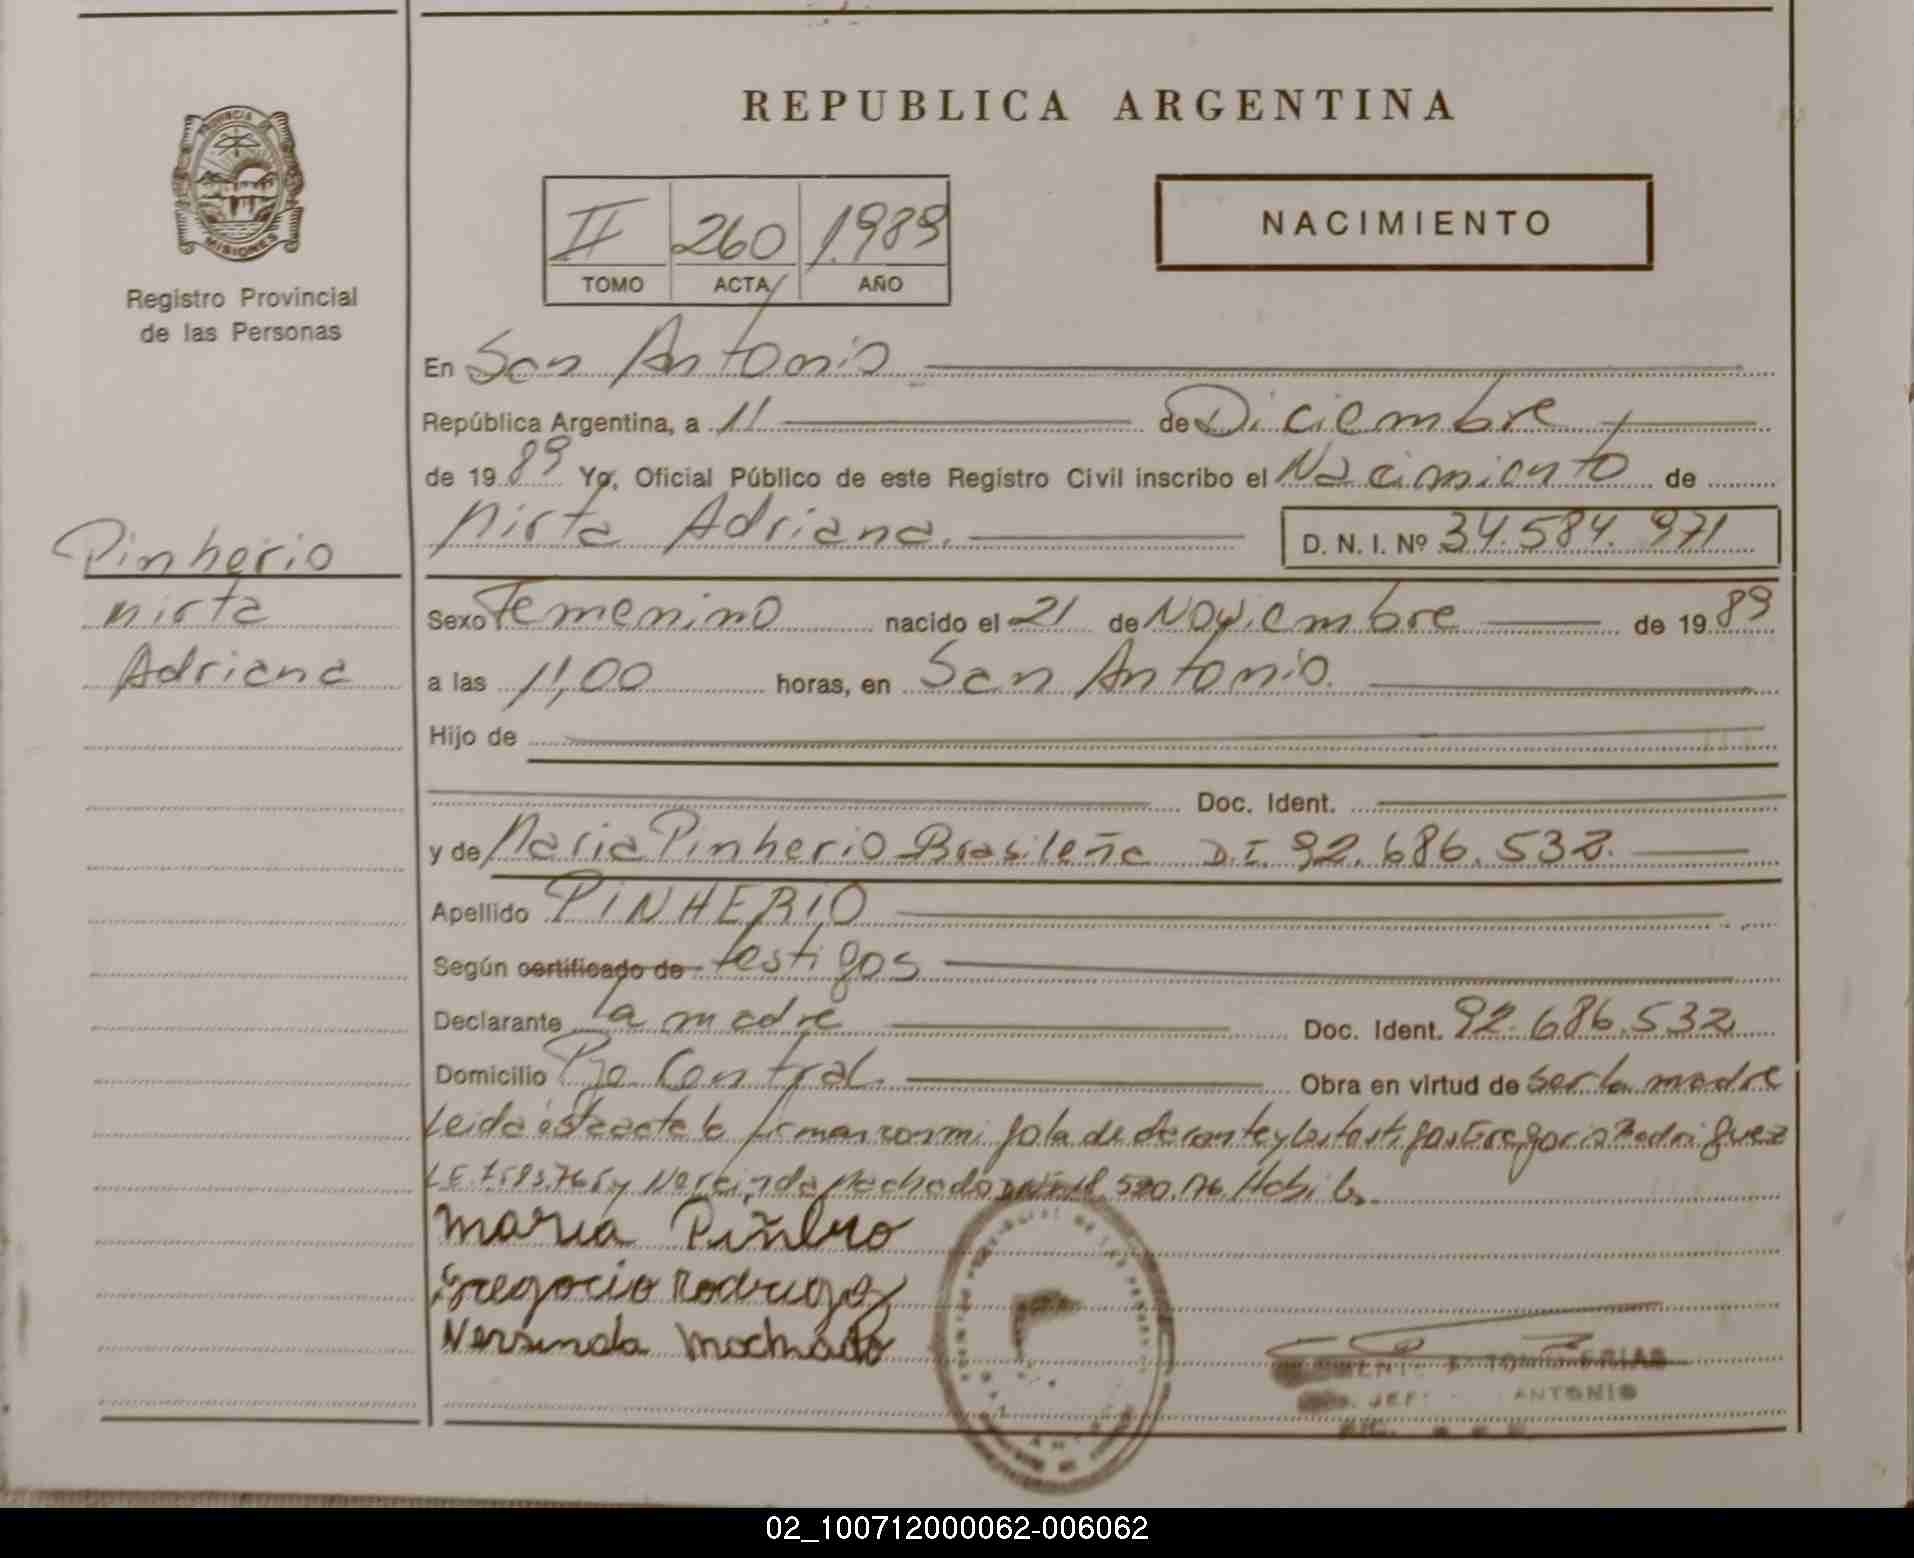 REPUBLICA ARGENTINA
PROVINCIA DE
MISIONES
Registro Provincial
de las Personas
II 260 1.989
TOMO ACTA AÑO
NACIMIENTO
En San Antonio
República Argentina, a 11 de Diciembre
de 1989 Yo, Oficial Público de este Registro Civil inscribo el Nacimiento de
Mirta Adriana. D. N. I. Nº 34.584.971
Pinherio
Mirta
Adriana
Sexo Femenino nacido el 21 de Noviembre de 1989
a las 11,00 horas, en San Antonio.
Hijo de
Doc. Ident.
y de Maria Pinherio Brasileña D.I. 92.686.532.
Apellido PINHERIO
Según certificado de testigos
Declarante La madre Doc. Ident. 92.686.532
Domicilio Pje Central. Obra en virtud de ser la madre
Leida esta acta la firman conmigo la declarante y los testigos Gregorio Rodriguez
L.E. y Machado 520.176 Habiles.
Maria Piñeiro
Gregorio Rodriguez
Nersinda Machado
ANTONIO
02_100712000062-006062